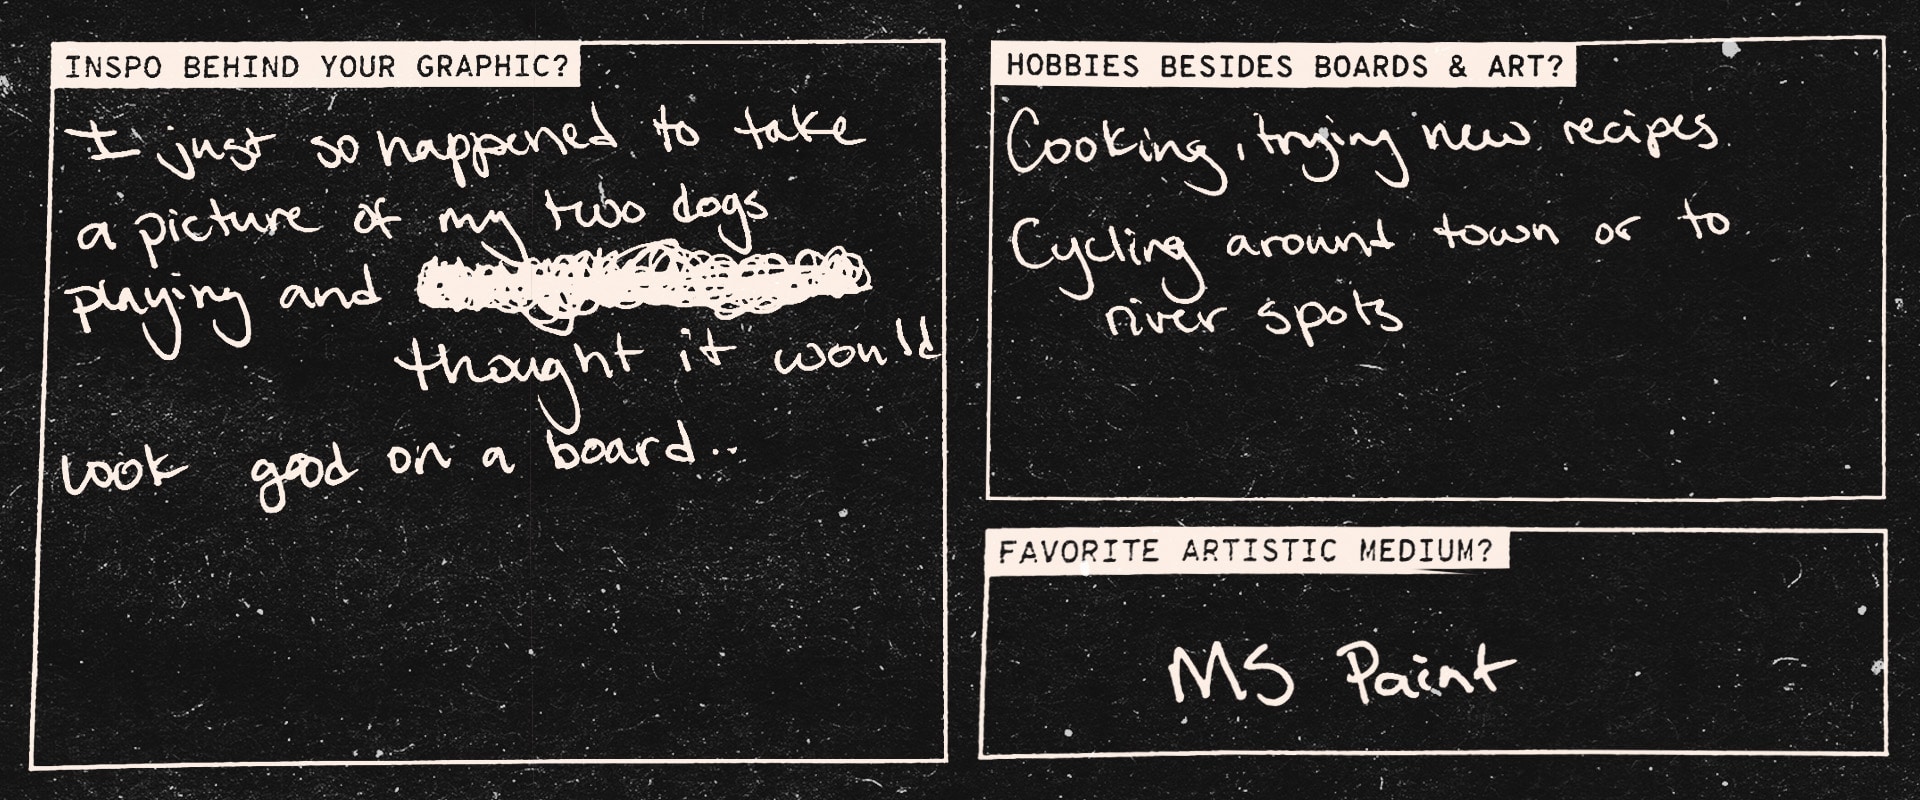 INSPO BEHIND YOUR GRAPHIC?
I just so happened to take
a picture of my two dogs
playing and
thought it would
look good on a board..
HOBBIES BESIDES BOARDS & ART?
Cooking, trying new recipes
Cycling around town or to
river spots
FAVORITE ARTISTIC MEDIUM?
MS Paint